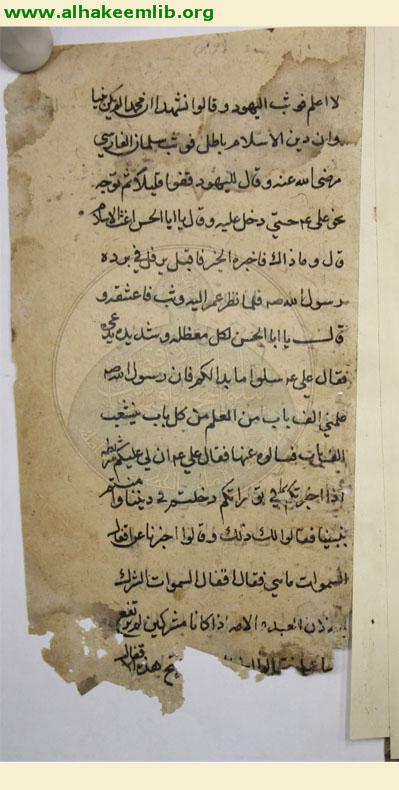 www.alhakeemlib.org
لا اعلم فوثب اليهود وقالوا نشهد ان محمدا لم يكن نبيا
وان دين الاسلام باطل فوثب سلمان الفارسي
رضى الله عنه وقال لليهود قفوا قليلا ثم توجه
نحو على ع حتى دخل عليه وقال يا ابا الحسن اغث الاسلام
قال وما ذاك فاخبره الخبر فاقبل يرفل في برده
رسول الله ص فلما نظر عمر اليه وثب فاعتنقه و
قال يا ابا الحسن لكل معظله وشده
فقال علي ع سلوا ما بدا لكم فان رسول الله ص
علمني الف باب من العلم من كل باب يتشعب
الف باب فسالوه عنها فقال علي ع ان لي عليكم شريطه
اذا اخبرتكم بما في توراتكم دخلتم في ديننا وامنتم
بنبينا فقالوا لك ذلك وقالوا اخبرنا عن اقفال
السموات ماهي فقال اقفال السموات الشرك
لان العبد و الامه اذا كانا مشركين لم يرتفع
هذه الاقفال